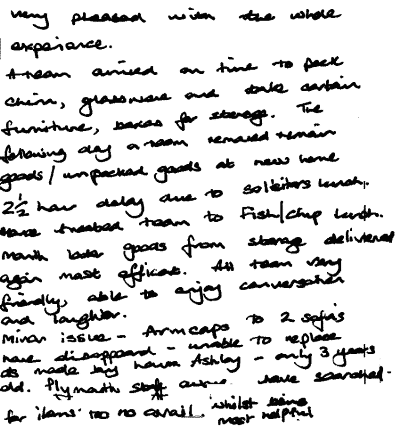 very pleased with the whole
experience.
A team arrived on time to pack
china, glassware and take certain
furniture, boxes for storage. The
following day a team removed remain
goods/unpacked goods at new home
2½ hour delay due to solicitors lunch,
have treated team to Fish/chip lunch.
Month later goods from storage delivered
again most efficient. All team very
friendly, able to enjoy conversation
and laughter.
Minor issue - Armcaps to 2 sofas
have disappeared - unable to replace
as made by Laura Ashley - only 3 years
old. Plymouth staff aware have searched
for items too no avail whilst being
most helpful